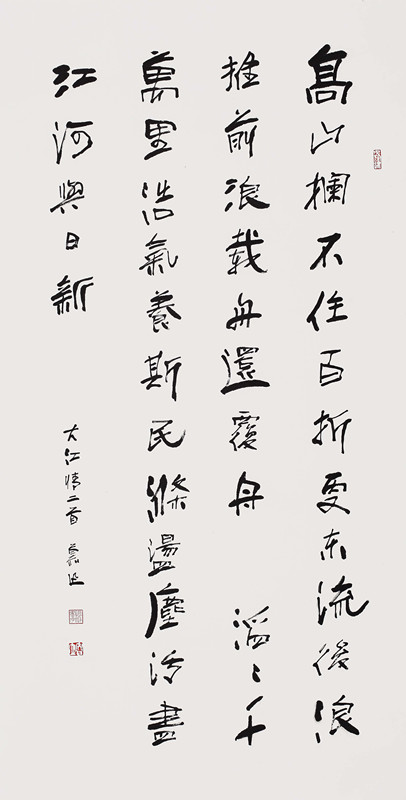 高山攔不住百折更东流後浪
推前浪載舟還覆舟 滔〻千
萬里浩氣養斯民滌盪塵污盡
江河與日新
大江情二首